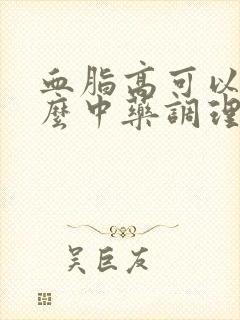 血脂高可以
麼中藥調理
吴巨友